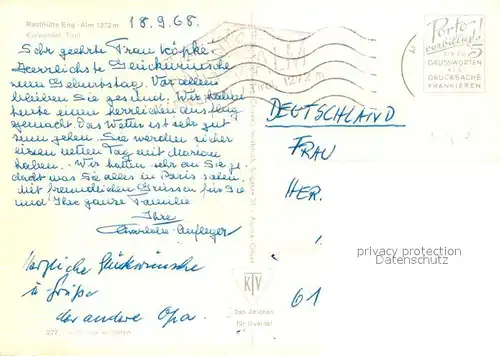 Rasthütte Eng - Alm 1272 m
Karwendel Tirol
18.9.68.
Sehr geehrte Frau Köpke!
Herzlichste Glückwünsche
zum Geburtstag. Vor allem
bleiben Sie gesund. Wir haben
heute einen herrlichen Ausflug
gemacht. Das Wetter ist sehr gut
zum gehen. Sie werden sicher
einen netten Tag mit Marion
haben. Wir hatten sehr an Sie ge-
dacht was Sie alles in Paris sahen.
Mit freundlichen Grüssen für Sie
und Ihre ganze Familie
Ihre
Charlotte Aufleger
Herzliche Glückwünsche
u Grüße
der andere Opa.
ALM
Tirol 1272 m
Porto
vorwilligt!
GRUSSWORTEN
ALS
DRUCKSACHE
FRANKIEREN
DEUTSCHLAND
FRAU
HER.
61
KTV
Das Zeichen
für Qualität
privacy protection
datenschutz